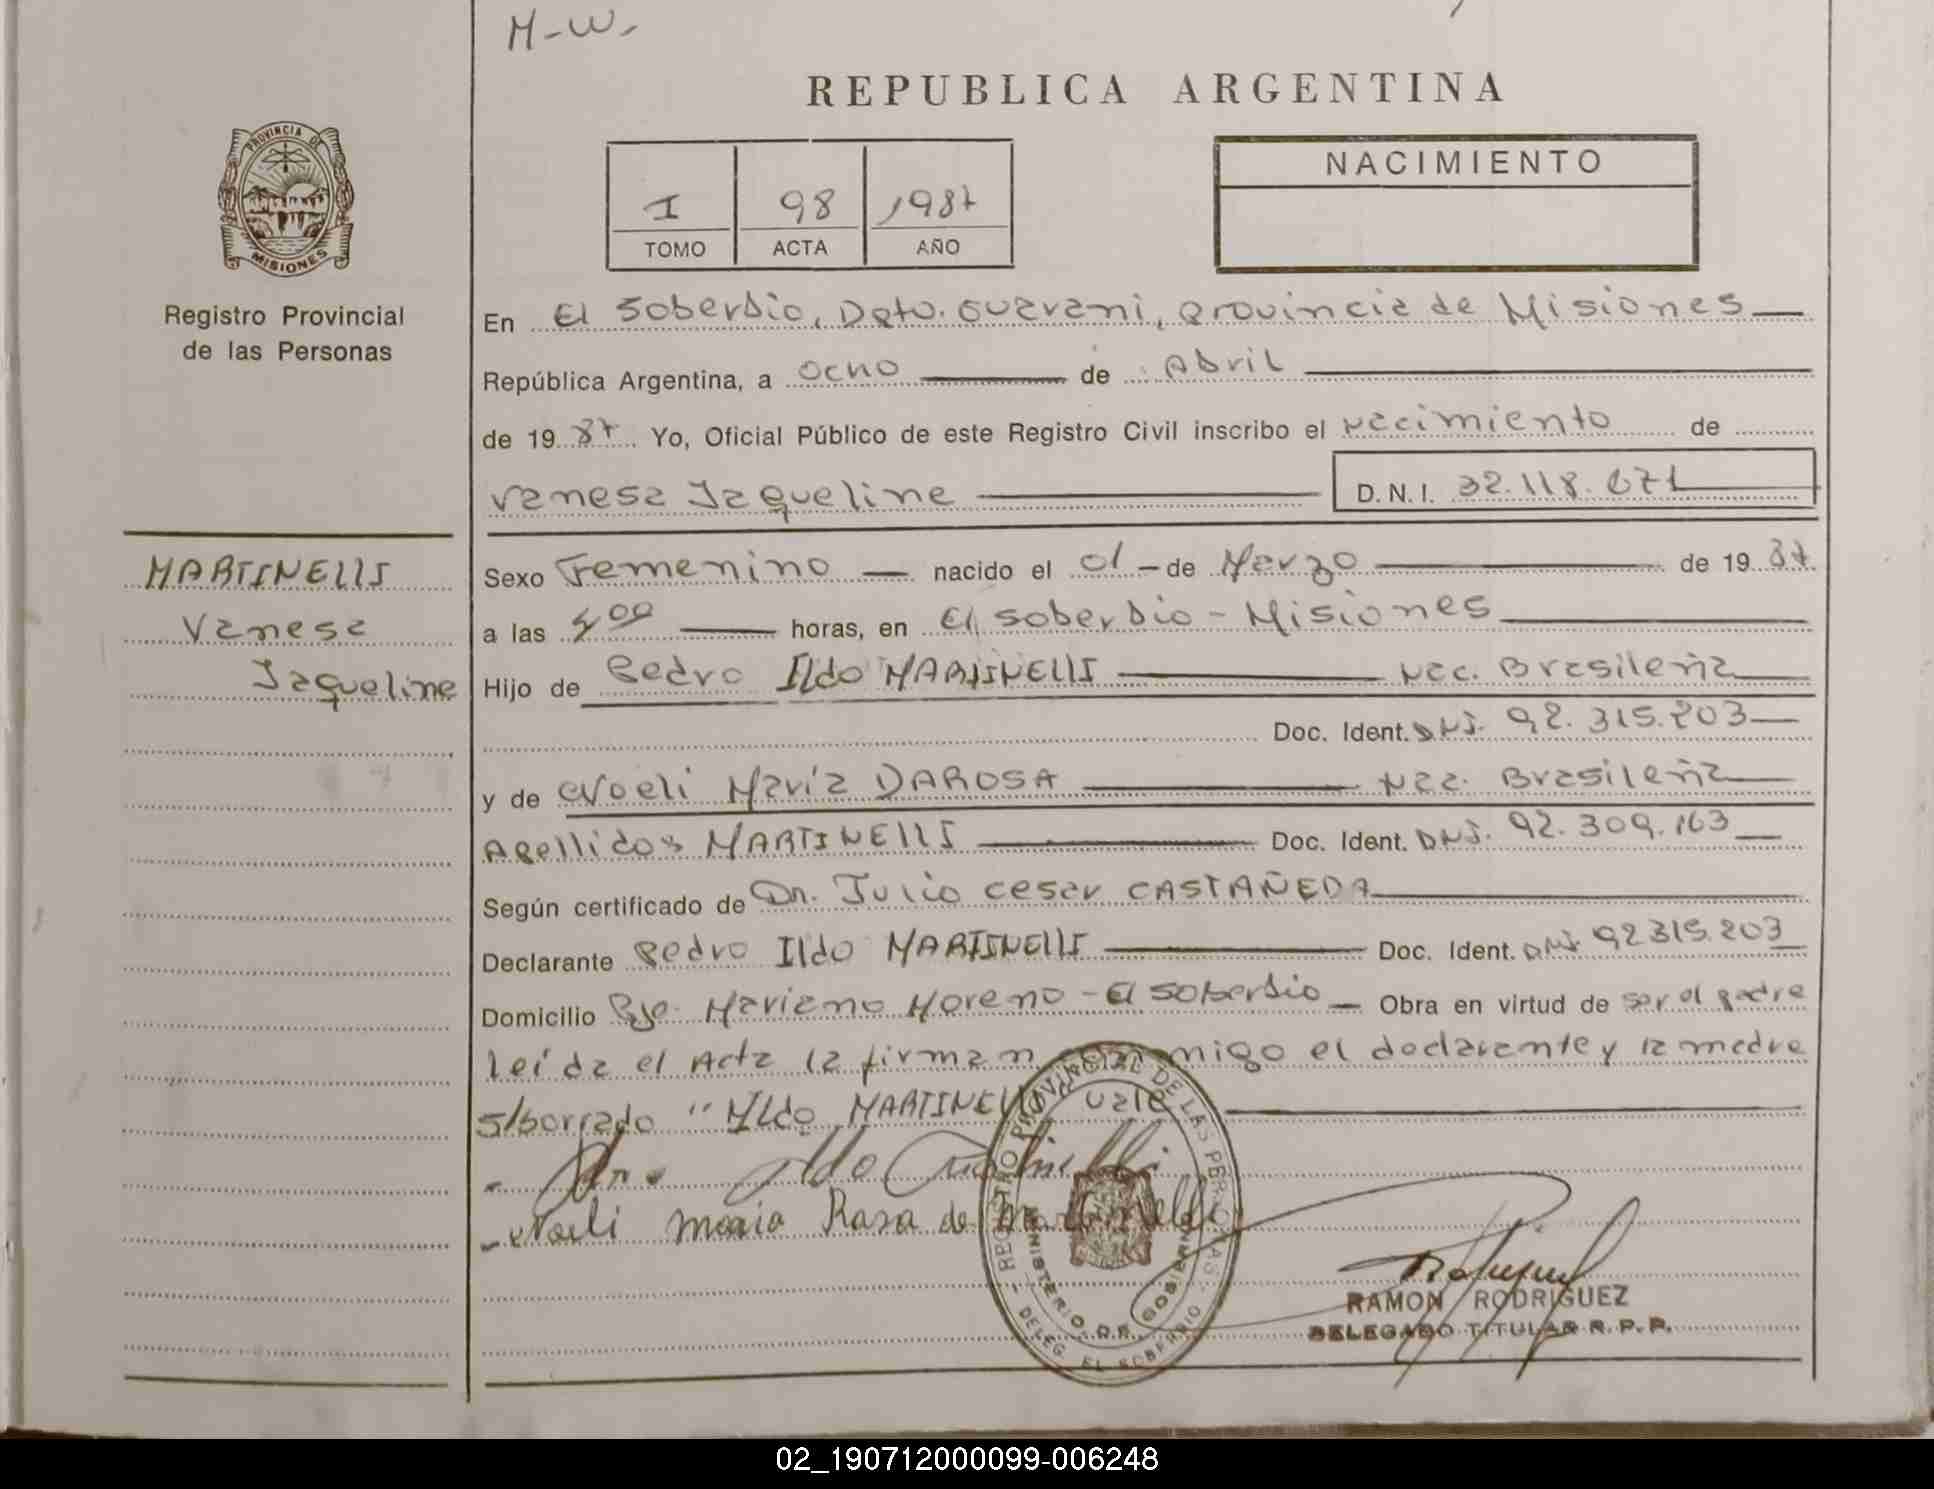 M-W-
REPUBLICA ARGENTINA
PROVINCIA DE
MISIONES
Registro Provincial
de las Personas
I 98 1987
TOMO ACTA AÑO
NACIMIENTO
En El Soberbio, Dpto. Guarani, Provincia de Misiones
República Argentina, a ocho de Abril
de 19 87 Yo, Oficial Público de este Registro Civil inscribo el nacimiento de
Vanesa Jaqueline D. N. I. 32.118.671
MARTINELLI
Vanesa
Jaqueline
Sexo Femenino nacido el 01 - de Marzo de 19 87
a las 4 00 horas, en El Soberbio - Misiones
Hijo de Pedro Ildo MARTINELLI Nac. Brasileña
Doc. Ident. DNI. 92.315.203
y de Noeli María DAROSA Nac. Brasileña
Apellidos MARTINELLI Doc. Ident. DNI. 92.309.163
Según certificado de Dr. Julio Cesar CASTAÑEDA
Declarante Pedro Ildo MARTINELLI Doc. Ident. DNI 92315.203
Domicilio Bjo. Mariano Moreno - El Soberbio - Obra en virtud de ser el padre
leída el Acta la firman conmigo el declarante y la madre
s/borrado "Ildo MARTINELLI" vale
Ildo Martinelli
Noeli Maria Rosa de Martinelli
REGISTRO PROVINCIAL DE LAS PERSONAS
MINISTERIO DE GOBIERNO
DELEG. EL SOBERBIO
RAMON RODRIGUEZ
DELEGADO TITULAR R. P. P.
02_190712000099-006248